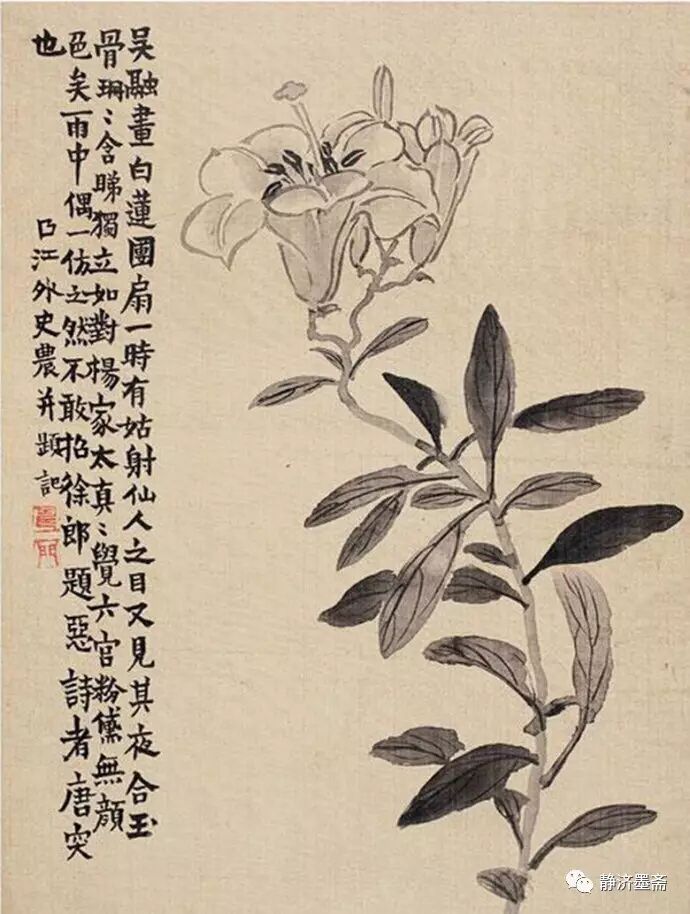 吳融畫白蓮團扇一時有姑射仙人之目又見其夜合玉
骨珊〻含睇獨立如對楊家太真〻覺六宮粉黛無顏
色矣雨中偶一仿之然不敢招徐郎題惡詩者唐突
也
江外史農并題記
静济墨斋